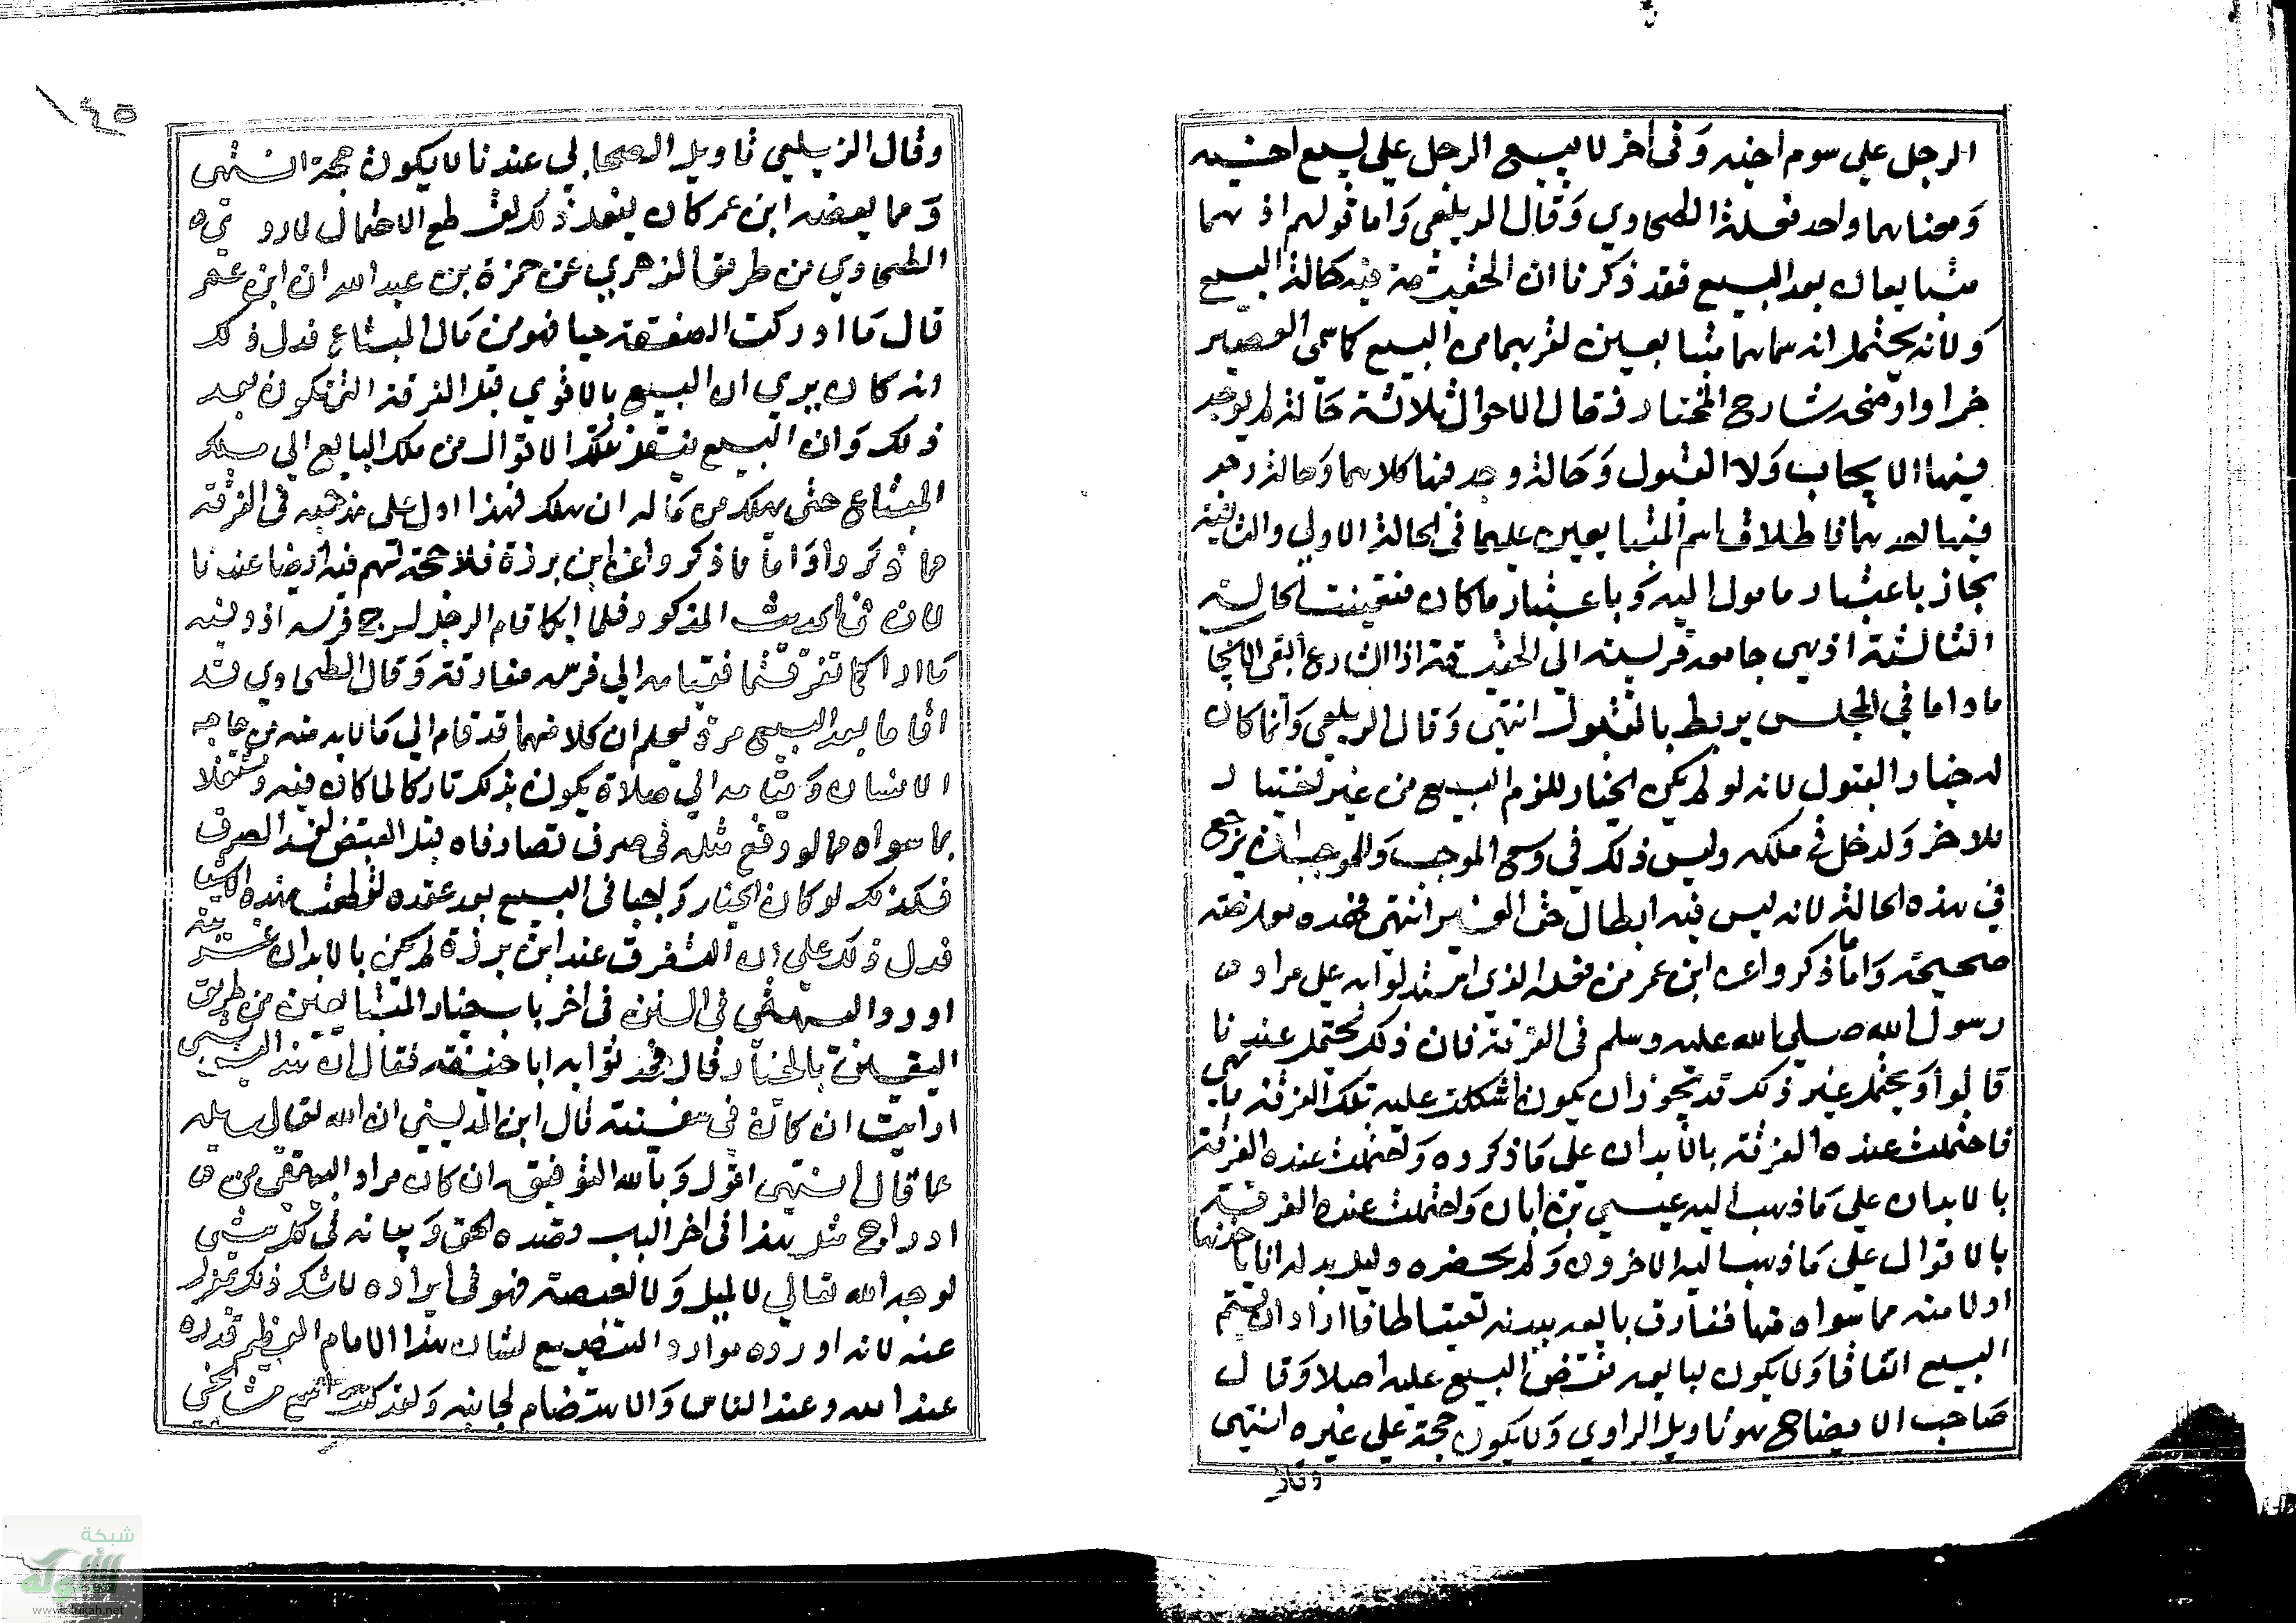 الرجل على سوم اخيه وَفى اخر لا يبيع الرجل على بيع اخيه
وَمعناهما واحد نقله الطحاوي وَقال الزيلعى وَاما قولهم اذ هما
متبايعان بعد البيع فقد ذكرنا ان الحقيقة فيه حالة البيع
وَلانه يحتمل انه سماهما متبايعين لقربهما من البيع كما سمي العصير
خمرا واوضحه شارح المختار فقال الاحوال ثلاثة حَالة لم يوجد
فيها الايجاب وَلا القبول وَحَالة وجد فيها كلاهما وَحالة وجد
فيها احدهما فاطلاق اسم المتبايعين عليهما فى الحالة الاولى والثانية
مجاز باعتبار ما يول اليه وَباعتبار ما كان فتعينت الحالة
الثالثة اذ هي جامعة قريبة الى الحقيقة اذ الشارع ابقى الايجاب
ما داما في المجلس يربط بالقبول انتهى وَقال الزيلعى وَانما كان
له خيار القبول لانه لو لم يكن الخيار للزم البيع من غير اختيار
للاخر وَلدخل في ملكه وليس ذلك في وسع الموجب وَللموجب ان يرجع
في هذه الحالة لانه ليس فيه ابطال حق الغير انتهى فهذه معارضة
صحيحة وَاما ما ذكروا عن ابن عمر من فعله الذي استدلوا به على مراد
رسول الله صلى الله عليه وسلم فى الفرقة فان ذلك يحتمل عندنا
قالوا وَيحتمل غير ذلك قد يجوز ان يكون اشكلت عليه تلك الفرقة ما هي
فاحتملت عنده الفرقة بالابدان على مَا ذكروه وَاحتملت عنده الفرقة
بالابدان على مَا ذهب اليه عيسى بن ابان وَاحتملت عنده الفرقة
بالاقوال على مَا ذهب اليه الاخرون وَلم يحضره دليل يدله انه باحدها
اولا منه مما سواه منها ففارق بايعه ببدنه احتياطا فاذا اراد ان يستتم
البيع اتفاقا وَلا يكون لبايعه نقض البيع عليه اصلا وَقال
صَاحب الايضاح هو تاويل الراوي وَلا يكون حجة على غيره انتهى
وقال
١٤٥
وقال الزيلعي تاويل الصحابي عندنا لا يكون حجة انتهى
وَمما يعضد ابن عمر كان يفعل ذلك لقطع الاحتمال لما روى
الطحاوي من طريق الزهري عن حمزة بن عبد الله ان ابن عمر
قال مَا ادركت الصفقة حيا فهو من مَال المبتاع فدل ذلك
انه كان يري ان البيع بالاقوال قبل الفرقة التى تكون بعد
ذلك وَان البيع ينتقل بتلك الاقوال من ملك البايع الي ملك
المبتاع حتى يهلك من مَاله ان هلك فهذا ادل على مذهبه فى الفرقة
مما ذكروا وَاما ما ذكروا عن ابي برزة فلا حجة لهم فيه ايضا عندنا
لان فى الحديث المذكور فلما اصبحا قام الرجل ليسرج فرسه اذ وليته
مَا اراكما تفرقتما فقيامه الي فرسه مفارقة وَقال الطحاوي قد
اقاما بعد البيع مدة يعلم ان كلا منهما قد قام الي مَا لا بد منه من حاجة
الانسان وَقيامه الي صلاة يكون بذلك تاركا لما كان فيه ومشتغلا
بما سواه مما لو وقع مثله فى صرف تصارفاه قبل القبض لفسد الصرف
فكذلك لو كان الخيار وَاجبا فى البيع بعد عقده لقطعت هذه الاشيا
فدل ذلك على ان التفرق عند ابي برزة لم يكن بالابدان
اورد البيهقى في السنن فى اخر باب خيار المتبايعين من طريق
بالخيار قال فحدثوا به ابا حنيفة فقال ان هذا ليس بشي
ارايت ان كانا في سفينة قال ابن المديني ان الله تعالى سايله
عما قال انتهى اقول وَبالله التوفيق ان كان مراد البيهقى من
ادراج مثل هذا فى اخر الباب وقصده الحق وَبيانه فى كل شي
لوجه الله تعالي لا لميل وَلا لعصبة فهو فى ايراده لا شك ذلك بمعزل
عنه لانه اورده موارد التضييع لشان هذا الامام العظيم قدره
عند الله وعند الناس وَالاهتضام لجانبه وَلقد كنت اسمع مشايخي